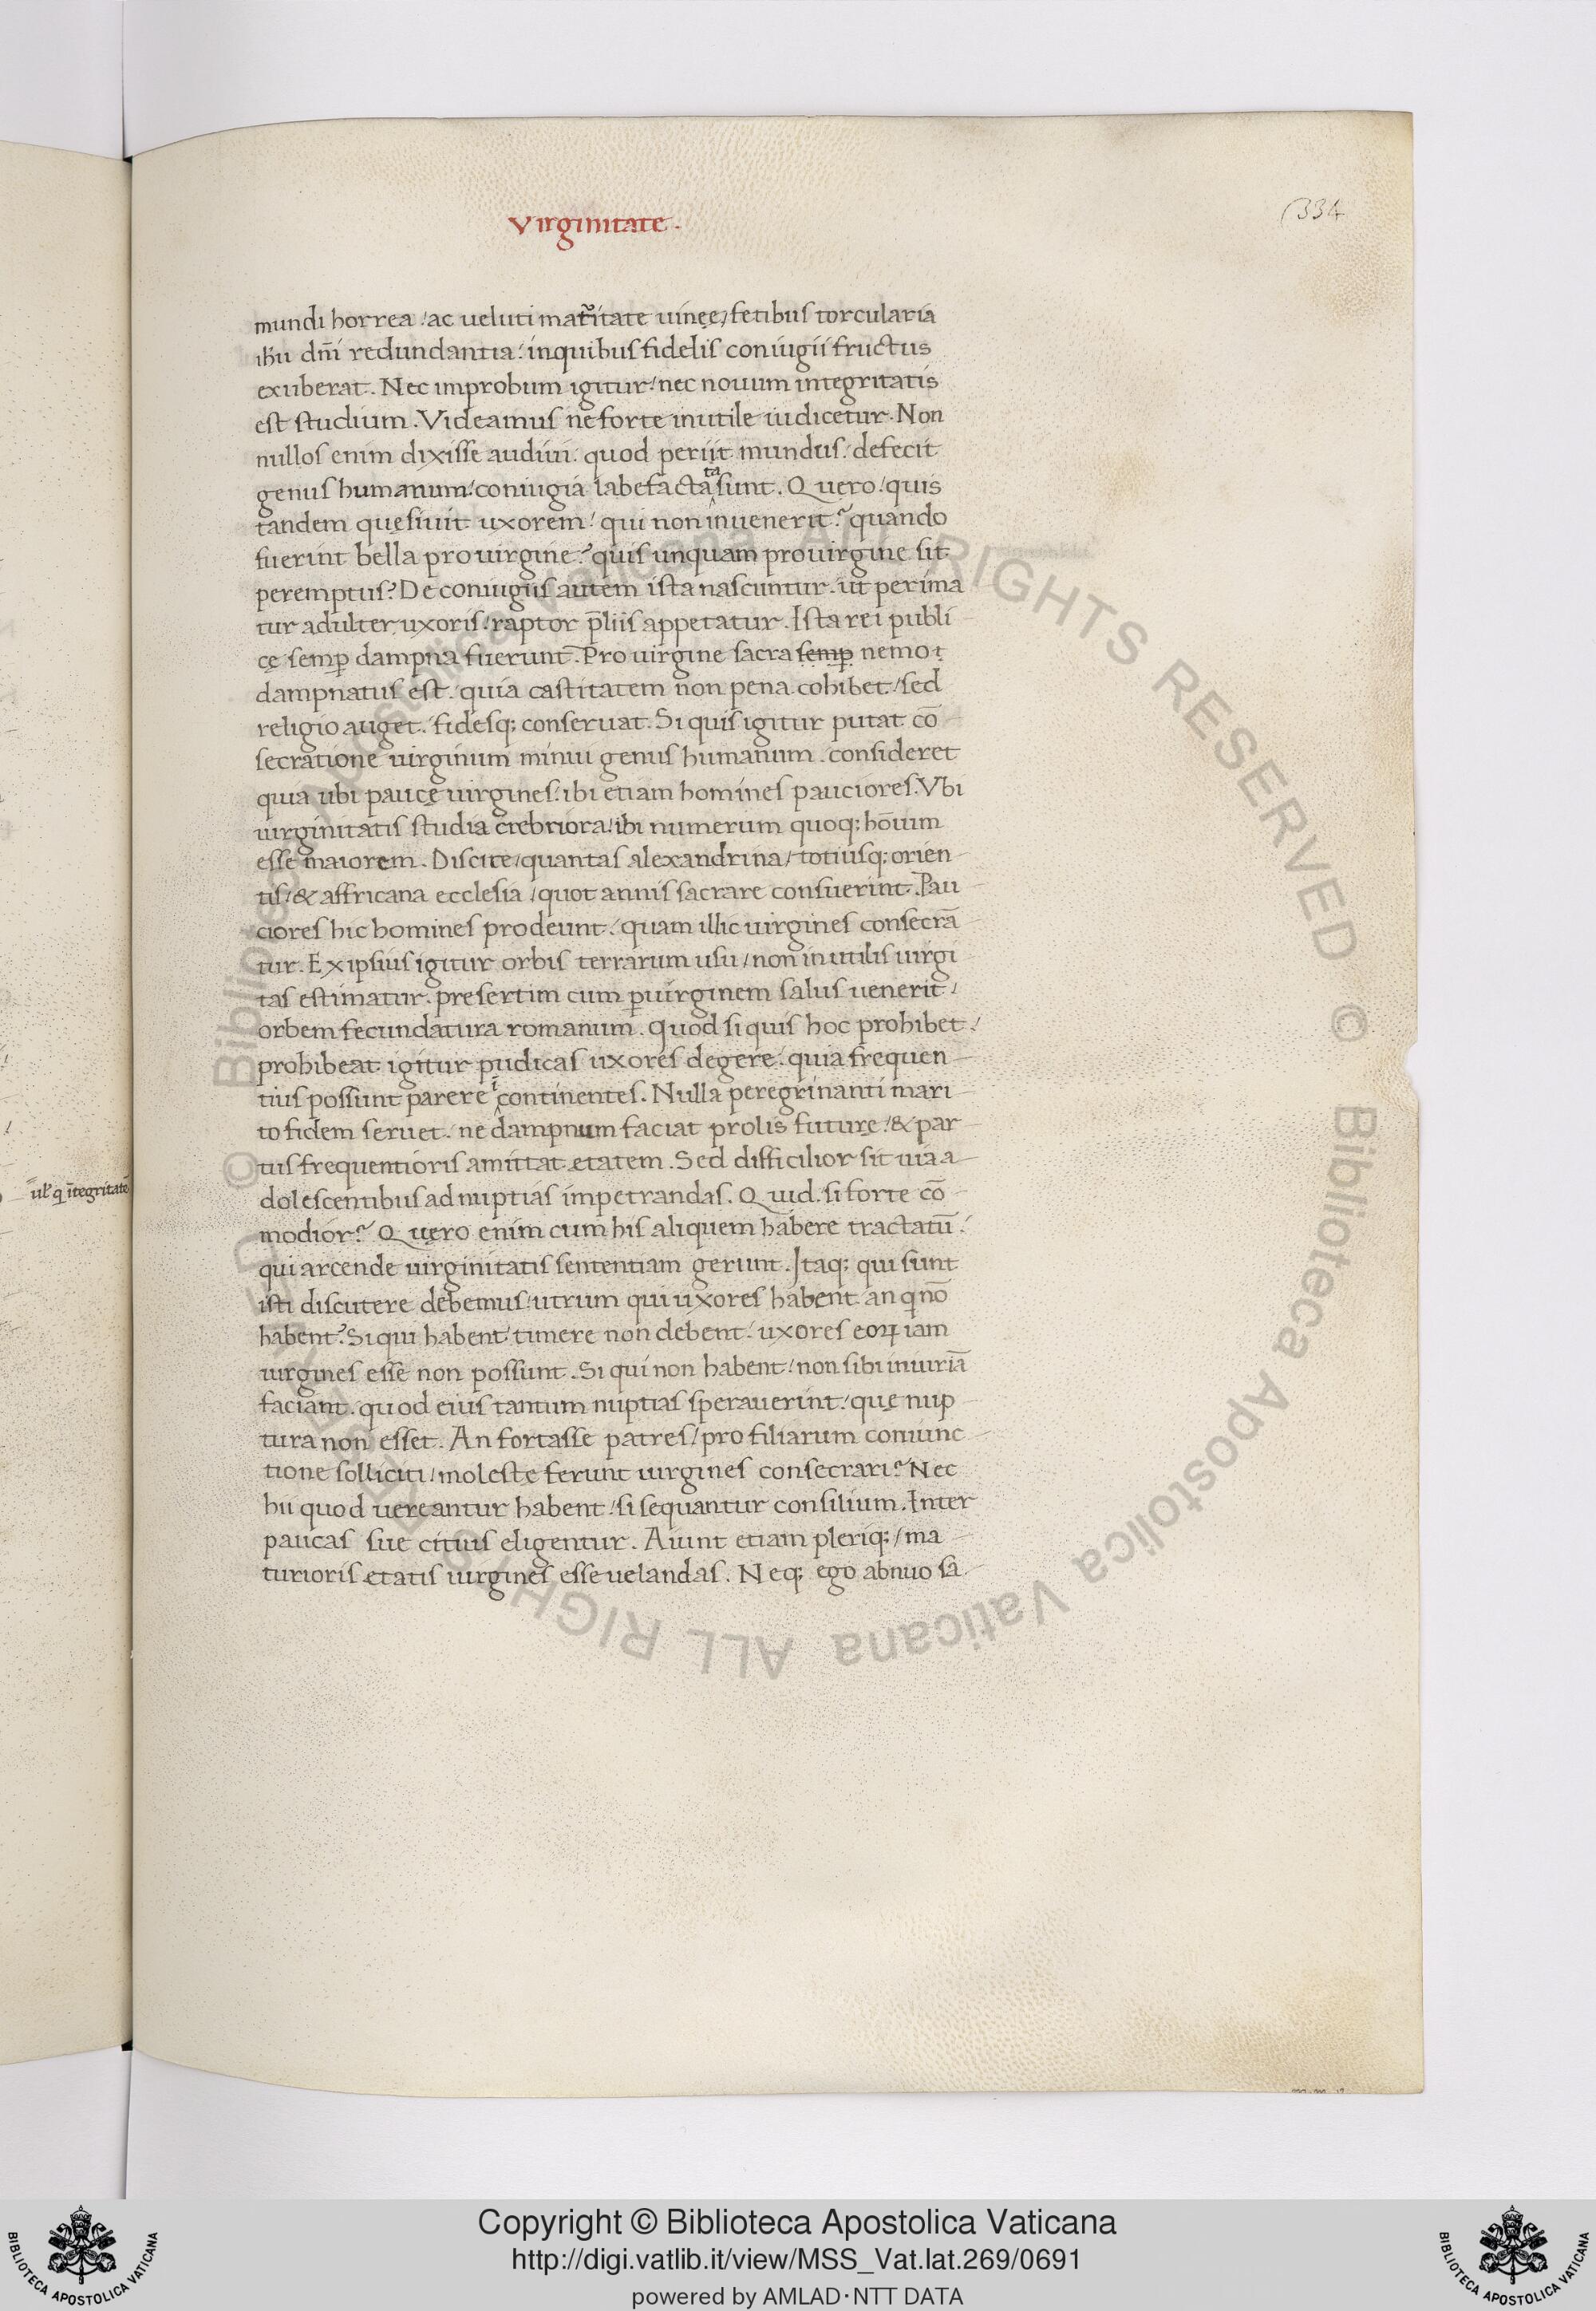 Virginitate.
(334
mundi horrea / ac ueluti maturitate uineę / fetibus torcularia
ihu dn̄i redundantia / in quibus fidelis coniugii fructus
exuberat. Nec improbum igitur / nec nouum integritatis
est studium. Videamus ne forte inutile iudicetur. Non
nullos enim dixisse audiui. quod periit mundus / defecit
genus humanum / coniugia labefactata sunt. Quero / quis
tandem quesiuit uxorem / qui non inuenerit? quando
fuerint bella pro uirgine? quis unquam pro uirgine sit
peremptus? De coniugiis autem ista nascuntur. ut perima
tur adulter uxoris / raptor p̄liis appetatur. Ista rei publi
cę semꝑ dampna fuerunt. Pro uirgine sacra semꝑ nemo
dampnatus est / quia castitatem non pena cohibet / sed
religio auget / fidesq; conseruat. Si quis igitur putat cō
secratione uirginum minui genus humanum. consideret
quia ubi paucę uirgines / ibi etiam homines pauciores. Vbi
uirginitatis studia crebriora / ibi numerum quoq; hōīum
esse maiorem. Discite / quantas alexandrina / totiusq; orien
tis / & affricana ecclesia / quot annis sacrare consuerint. Pau
ciores hic homines prodeunt / quam illic uirgines consecrā
tur. Ex ipsius igitur orbis terrarum usu / non inutilis uirgi
tas estimatur. presertim cum ꝑ uirginem salus uenerit /
orbem fecundatura romanum. Quod si quis hoc prohibet /
prohibeat igitur pudicas uxores degere / quia frequen
tius possunt parere īcontinentes. Nulla peregrinanti mari
to fidem seruet / ne dampnum faciat prolis futurę / & par
tus frequentioris amittat etatem. Sed difficilior sit uia a
dolescentibus ad nuptias impetrandas. Quid. si forte cō
modior? Quero enim cum his aliquem habere tractatū /
qui arcende uirginitatis sententiam gerunt. Itaq; qui sunt
isti discutere debemus / utrum qui uxores habent an q nō
habent? Si qui habent / timere non debent / uxores eoꝝ iam
uirgines esse non possunt. Si qui non habent / non sibi iniuriā
faciant. quod eius tantum nuptias sperauerint / quę nup
tura non esset. An fortasse patres / pro filiarum coniunc
tione solliciti / moleste ferunt uirgines consecrari? Nec
hii quod uereantur habent / si sequantur consilium. Inter
paucas sue citius eligentur. Aiunt etiam pleriq; / ma
turioris etatis uirgines esse uelandas. Neq; ego abnuo sa
ul' q ītegritatē
© Biblioteca Apostolica Vaticana ALL RIGHTS RESERVED © Biblioteca Apostolica Vaticana ALL RIGHTS RESERVED
Copyright © Biblioteca Apostolica Vaticana
http://digi.vatlib.it/view/MSS_Vat.lat.269/0691
powered by AMLAD·NTT DATA
BIBLIOTECA APOSTOLICA VATICANA
BIBLIOTECA APOSTOLICA VATICANA